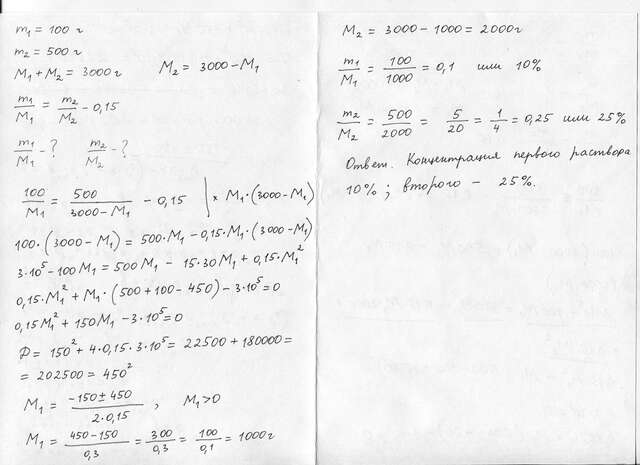 m₁ = 100 г
m₂ = 500 г
M₁ + M₂ = 3000 г   M₂ = 3000 − M₁
m₁/M₁ = m₂/M₂ − 0,15
m₁/M₁ − ?   m₂/M₂ − ?
100/M₁ = 500/(3000 − M₁) − 0,15 | × M₁·(3000 − M₁)
100·(3000 − M₁) = 500·M₁ − 0,15·M₁·(3000 − M₁)
3·10⁵ − 100M₁ = 500M₁ − 15·30M₁ + 0,15·M₁²
0,15·M₁² + M₁·(500 + 100 − 450) − 3·10⁵ = 0
0,15M₁² + 150M₁ − 3·10⁵ = 0
D = 150² + 4·0,15·3·10⁵ = 22500 + 180000 =
= 202500 = 450²
M₁ = (−150 ± 450)/(2·0,15) , M₁ > 0
M₁ = (450 − 150)/0,3 = 300/0,3 = 100/0,1 = 1000 г
M₂ = 3000 − 1000 = 2000 г
m₁/M₁ = 100/1000 = 0,1 или 10%
m₂/M₂ = 500/2000 = 5/20 = 1/4 = 0,25 или 25%
Ответ. Концентрация первого раствора
10% ; второго − 25%.